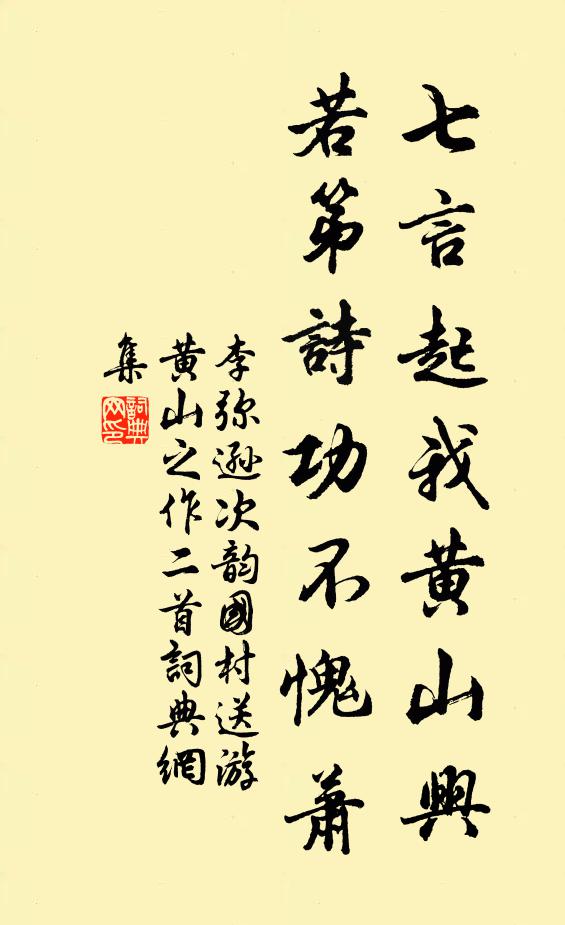 七言起我黄山興
若第詩功不愧蕭
李弥遜次韵國村送游
黄山之作二首詞典網
集
詞典
网印